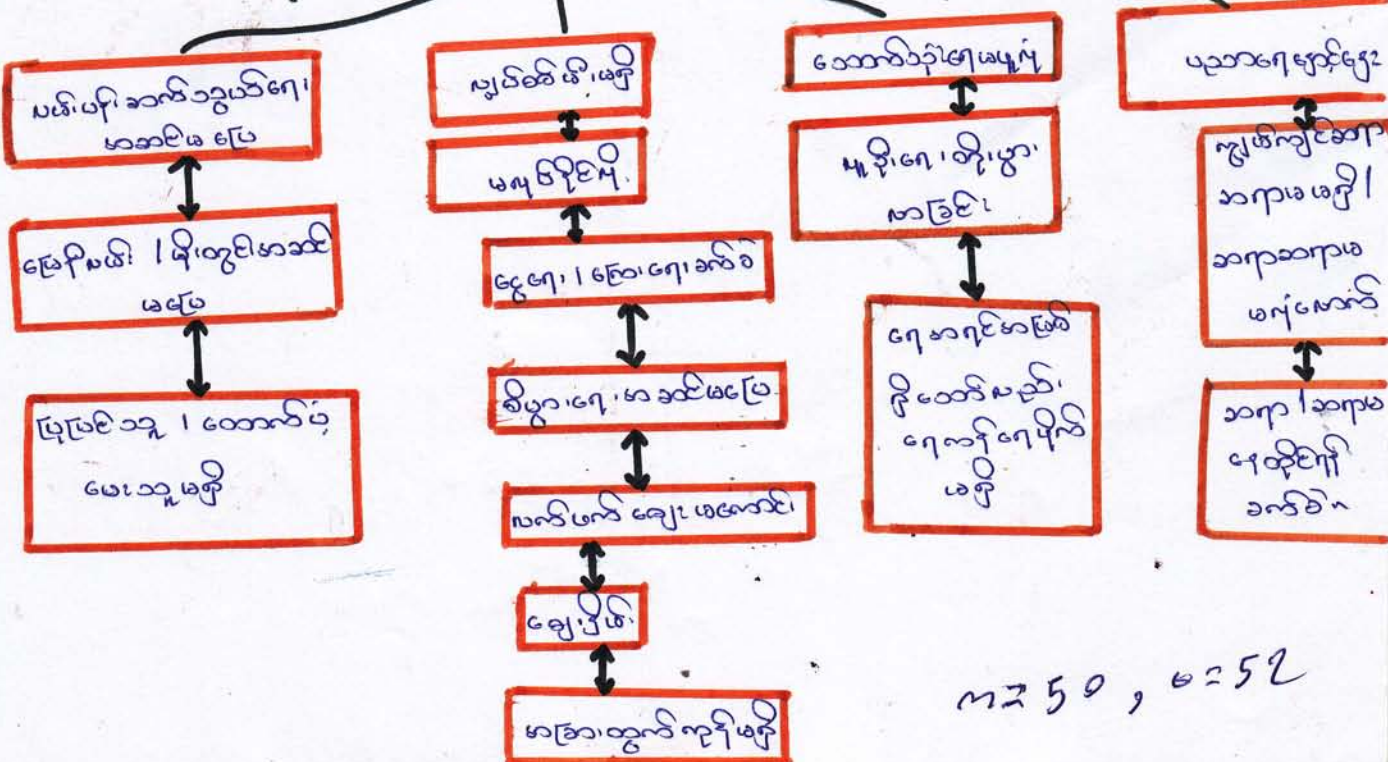 လမ်းပန်းဆက်သွယ်ရေး
မာဆင်မပြေ
မြေနီလမ်း / မိုးတွင်းမာဆင်
မပြေ
ပြုပြင်သူ / ထောက်ပံ့
မေးသူမရှိ
လျှပ်စစ်မီးမရှိ
မလုပ်ပိုင်လို့
ငွေရေး / ကြေးရေးခက်ခဲ
စီပွားရေးမာဆင်မပြေ
လက်ဖက်ဈေးမကောင်း
ဈေးနှိမ်း
မာခြားထွက်ကုန်မရှိ
သောက်သုံးရေမလုံ
လူဦးရေးတိုးပွား
လာခြင်း
ရေမာရင်မာမြစ်
ရှိသော်လည်း
ရေကန်ရေပိုက်
မရှိ
ပညာရေးနှောင့်နှေး
ကျွမ်းကျင်ဆရာ
ဆရာမမရှိ /
ဆရာဆရာမ
မလုံလောက်
ဆရာ / ဆရာမ
နေထိုင်ရန်
ခက်ခဲ။
က=50, မ=52